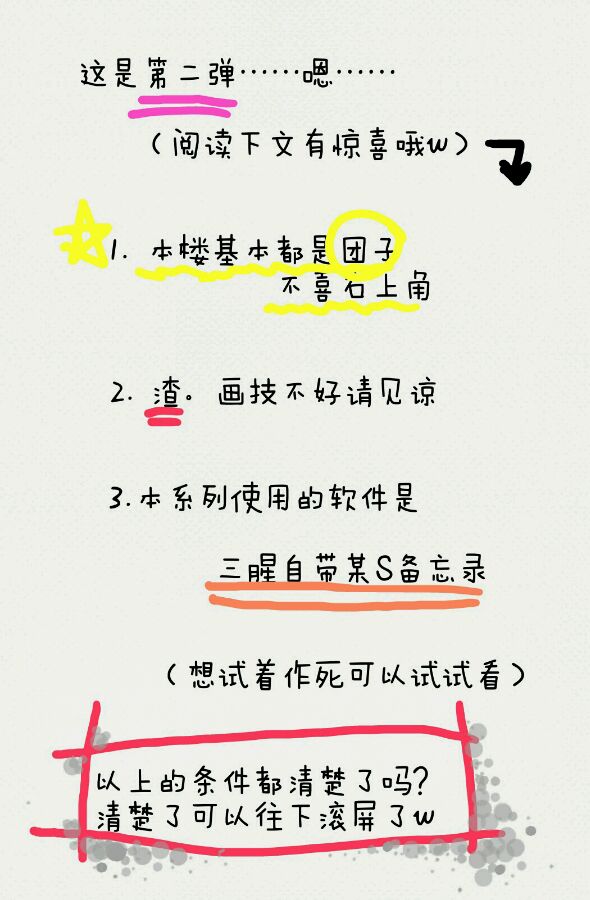 这是第二弹……嗯……
（阅读下文有惊喜哦w）
1. 本楼基本都是团子
不喜右上角
2. 渣。画技不好请见谅
3.本系列使用的软件是
三腥自带某S备忘录
（想试着作死可以试试看）
以上的条件都清楚了吗?
清楚了可以往下滚屏了w